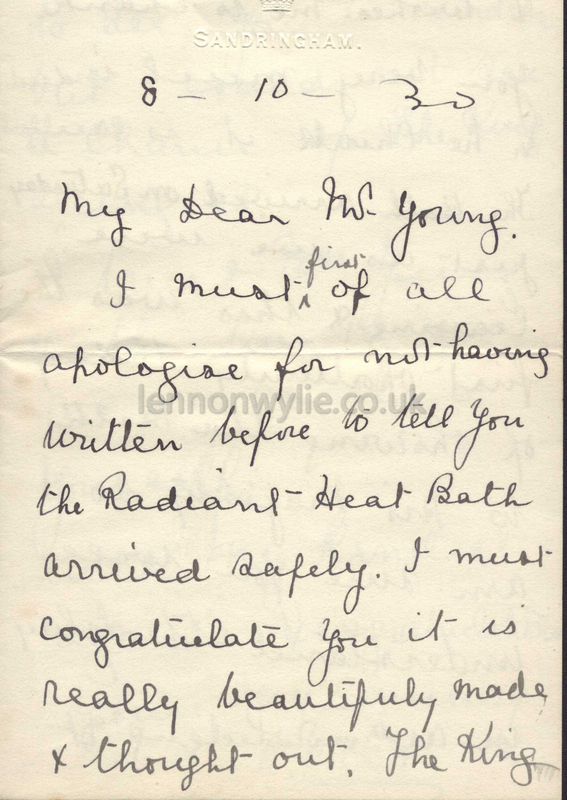 SANDRINGHAM.
8 - 10 - 30
My Dear Mr Young.
I must first of all
apologise for not having
lennonwylie.co.uk
written before to tell you
the Radiant Heat Bath
arrived safely. I must
congratulate you it is
really beautifuly made
& thought out. The King